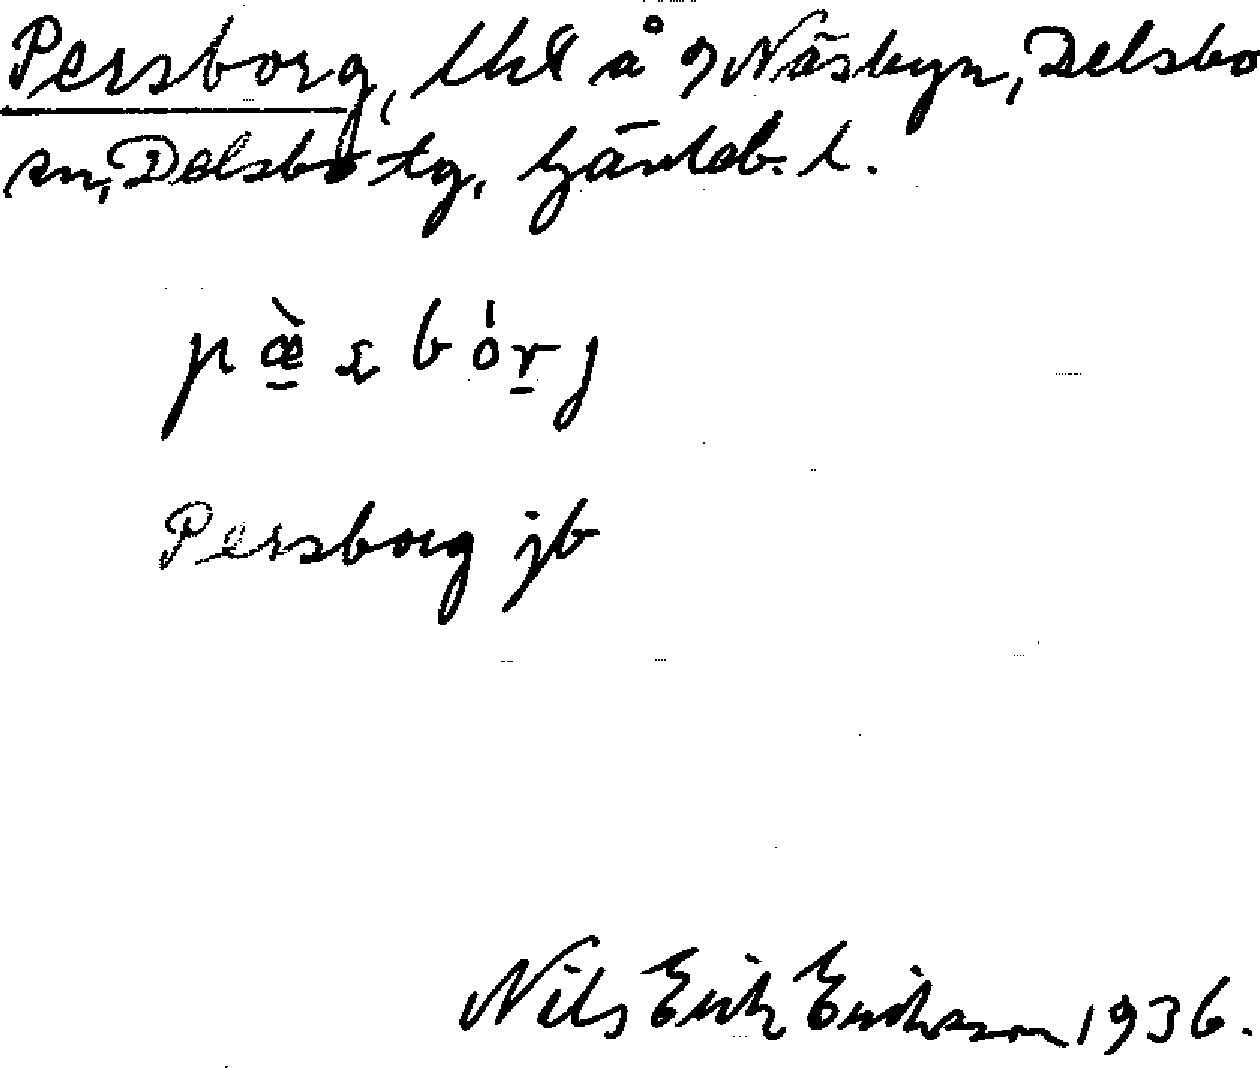 Persborg, lht å Näsbyn, Delsbo
sn, Delsbo tg, Gävleb. l.
Persborg jb
Nils Erik Eriksson 1936.